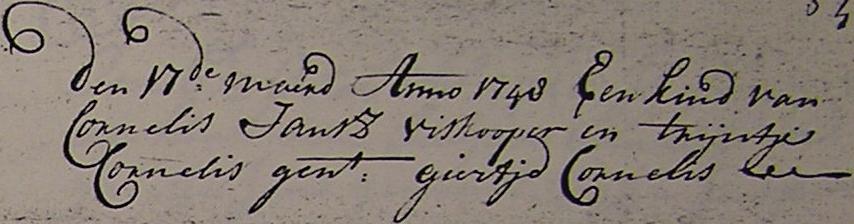 Den 17de maerd Anno 1748 Een kind van
Cornelis Jansz Viskooper en trijntje
Cornelis gent: giertje Cornelis